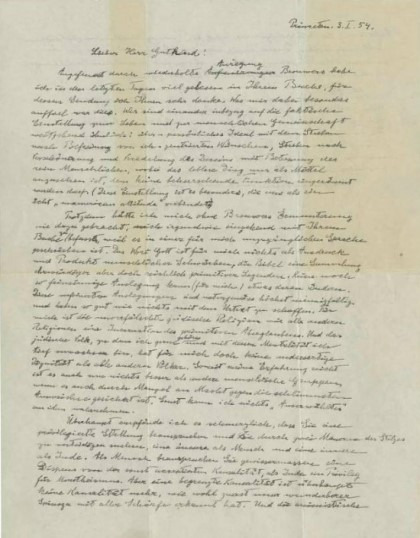 Princeton. 3. I. 54.
Lieber Herr Gutkind!
Angefeuert durch wiederholte Anregung Brouwers habe
ich in den letzten Tagen viel gelesen in Ihrem Buche, für
dessen Sendung ich Ihnen sehr danke. Was mir dabei besonders
auffiel war dies. Wir sind einander inbezug auf die faktische
Einstellung zum Leben und zur menschlichen Gemeinschaft
weitgehend ähnlich: über-persönliches Ideal mit dem Streben
nach Befreiung von ich-zentrierten Wünschen, Streben nach
Verschönerung und Veredelung des Daseins mit Betonung des
rein Menschlichen, wobei das leblose Ding nur als Mittel
anzusehen ist, dem keine beherrschende Funktion eingeräumt
werden darf. (Diese Einstellung ist es besonders, die uns als ein
echt "unamerican attitude" verbindet.)
Trotzdem hätte ich mich ohne Brouwers Ermunterung
nie dazu gebracht, mich irgendwie eingehend mit Ihrem
Buche zu befassen, weil es in einer für mich unzugänglichen Sprache
geschrieben ist. Das Wort Gott ist für mich nichts als Ausdruck
und Produkt menschlicher Schwächen, die Bibel eine Sammlung
ehrwürdiger aber doch reichlich primitiver Legenden. Keine noch
so feinsinnige Auslegung kann (für mich) etwas daran ändern.
Diese verfeinerten Auslegungen sind naturgemäss höchst mannigfaltig
und haben so gut wie nichts mit dem Urtext zu schaffen. Für
mich ist die unverfälschte jüdische Religion wie alle anderen
Religionen eine Incarnation des primitiven Aberglaubens. Und das
jüdische Volk, zu dem ich gerne gehöre und mit dessen Mentalität ich
tief verwachsen bin, hat für mich doch keine andersartige
Dignität als alle anderen Völker. Soweit meine Erfahrung reicht
ist es auch um nichts besser als andere menschliche Gruppen
wenn es auch durch Mangel an Macht gegen die schlimmsten
Auswüchse gesichert ist. Sonst kann ich nichts „Auserwähltes"
an ihm wahrnehmen.
Überhaupt empfinde ich es schmerzlich, dass Sie eine
privilegierte Stellung beanspruchen und sie durch zwei Mauern des Stolzes
zu verteidigen suchen, eine äussere als Mensch und eine innere
als Jude. Als Mensch beanspruchen Sie gewissermassen einen
Dispens von der sonst acceptierten Kausalität, als Jude ein Privileg
für Monotheismus. Aber eine begrenzte Kausalität ist überhaupt
keine Kausalität mehr, wie wohl zuerst unser wunderbarer
Spinoza mit aller Schärfe erkannt hat. Und die animistische